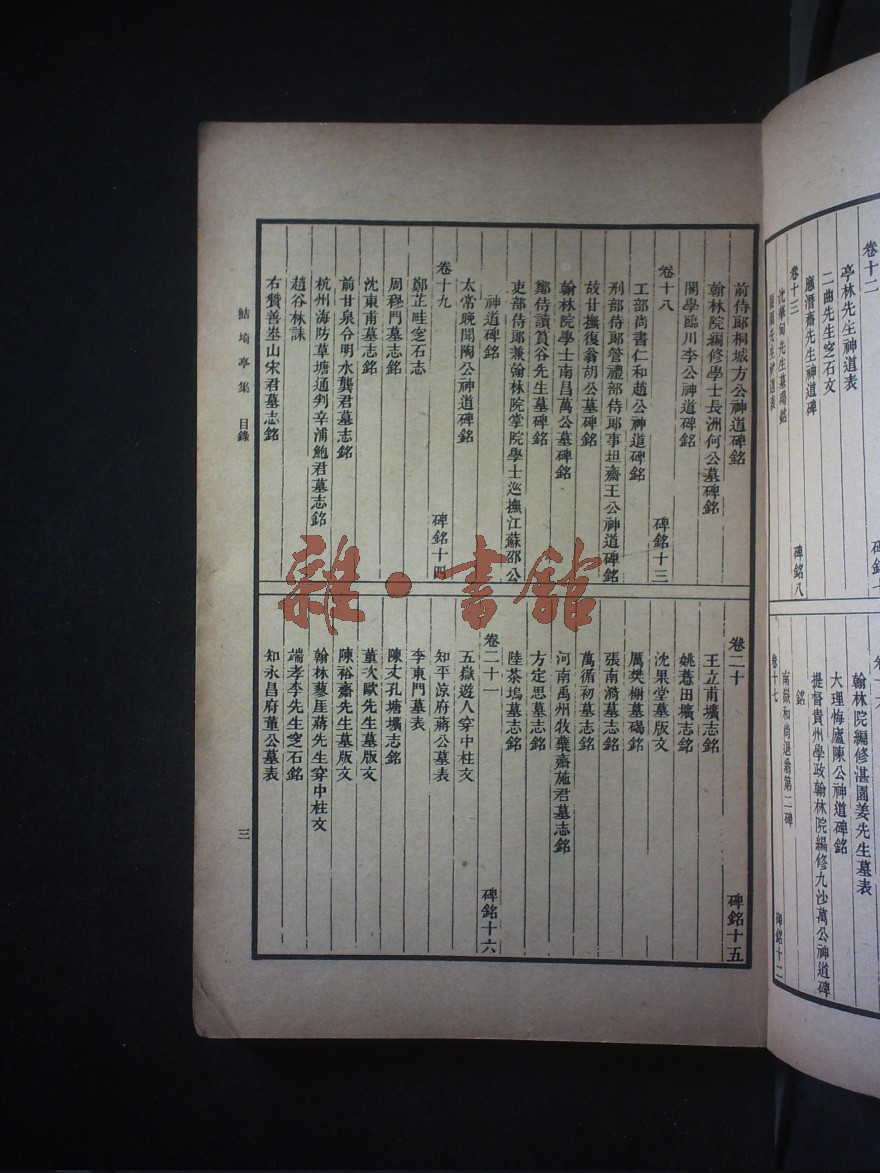 卷十二
亭林先生神道表
二曲先生窆石文
應潛齋先生神道碑
卷十三
碑銘八
沈華甸先生墓碣銘
翰林院編修湛園姜先生墓表
大理悔廬陳公神道碑銘
提督貴州學政翰林院編修九沙萬公神道碑
銘
南嶽和尚退翁第二碑
卷十七
碑銘十二
前侍郎桐城方公神道碑銘
翰林院編修學士長洲何公墓碑銘
閣學臨川李公神道碑銘
卷十八
碑銘十三
工部尚書仁和趙公神道碑銘
刑部侍郎管禮部侍郎事坦齋王公神道碑銘
故甘撫復翁胡公墓碑銘
翰林院學士南昌萬公墓碑銘
鄭侍讀篔谷先生墓碑銘
吏部侍郎兼翰林院掌院學士巡撫江蘇邵公
神道碑銘
太常晚聞陶公神道碑銘
卷十九
碑銘十四
鄭芷畦窆石志
周穆門墓志銘
沈東甫墓志銘
前甘泉令明水龔君墓志銘
杭州海防草塘通判辛浦鮑君墓志銘
趙谷林誄
右贊善峚山宋君墓志銘
卷二十
碑銘十五
王立甫壙志銘
姚薏田壙志銘
沈果堂墓版文
厲樊榭墓碣銘
張南漪墓志銘
萬循初墓志銘
河南禹州牧藥齋施君墓志銘
方定思墓志銘
陸茶塢墓志銘
卷二十一
碑銘十六
五嶽遊人穿中柱文
知平涼府蔣公墓表
李東門墓表
陳丈孔塘壙志銘
董次歐先生墓版文
陳裕齋先生墓版文
翰林蓼厓蔣先生穿中柱文
端孝李先生窆石銘
知永昌府董公墓表
鮚埼亭集 目錄
三
雜·書館